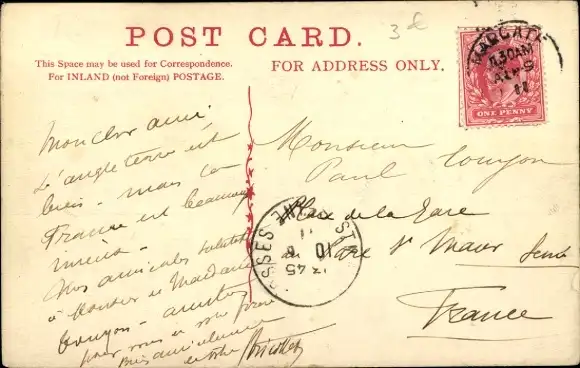 POST CARD.
This Space may be used for Correspondence.
For INLAND (not Foreign) POSTAGE.
FOR ADDRESS ONLY.
3€
MARGATE
11.30AM
11
ONE PENNY
Mon cher ami
L'angleterre est
bien - mais la
France est beaucoup
mieux -
Mes amicales salutations
à Monsieur et Madame
pour vous et votre
Bien amicalement
Monsieur
Paul
Place de la Gare
Parc St Maur Seine
France
13 45
10